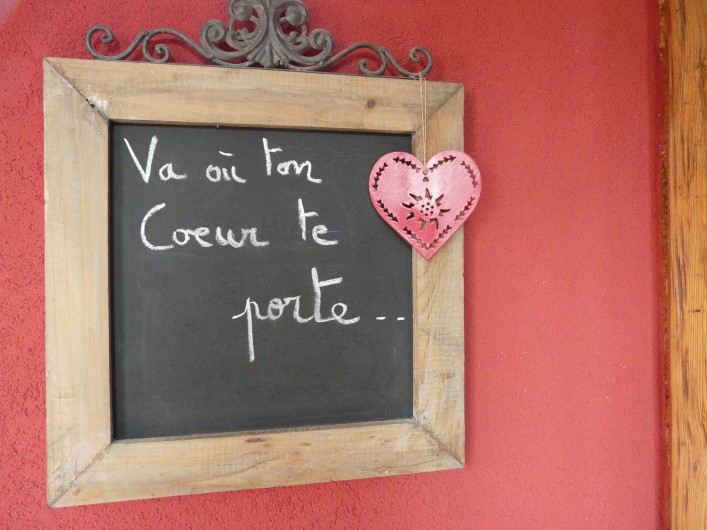 Va où ton
Coeur te
porte...